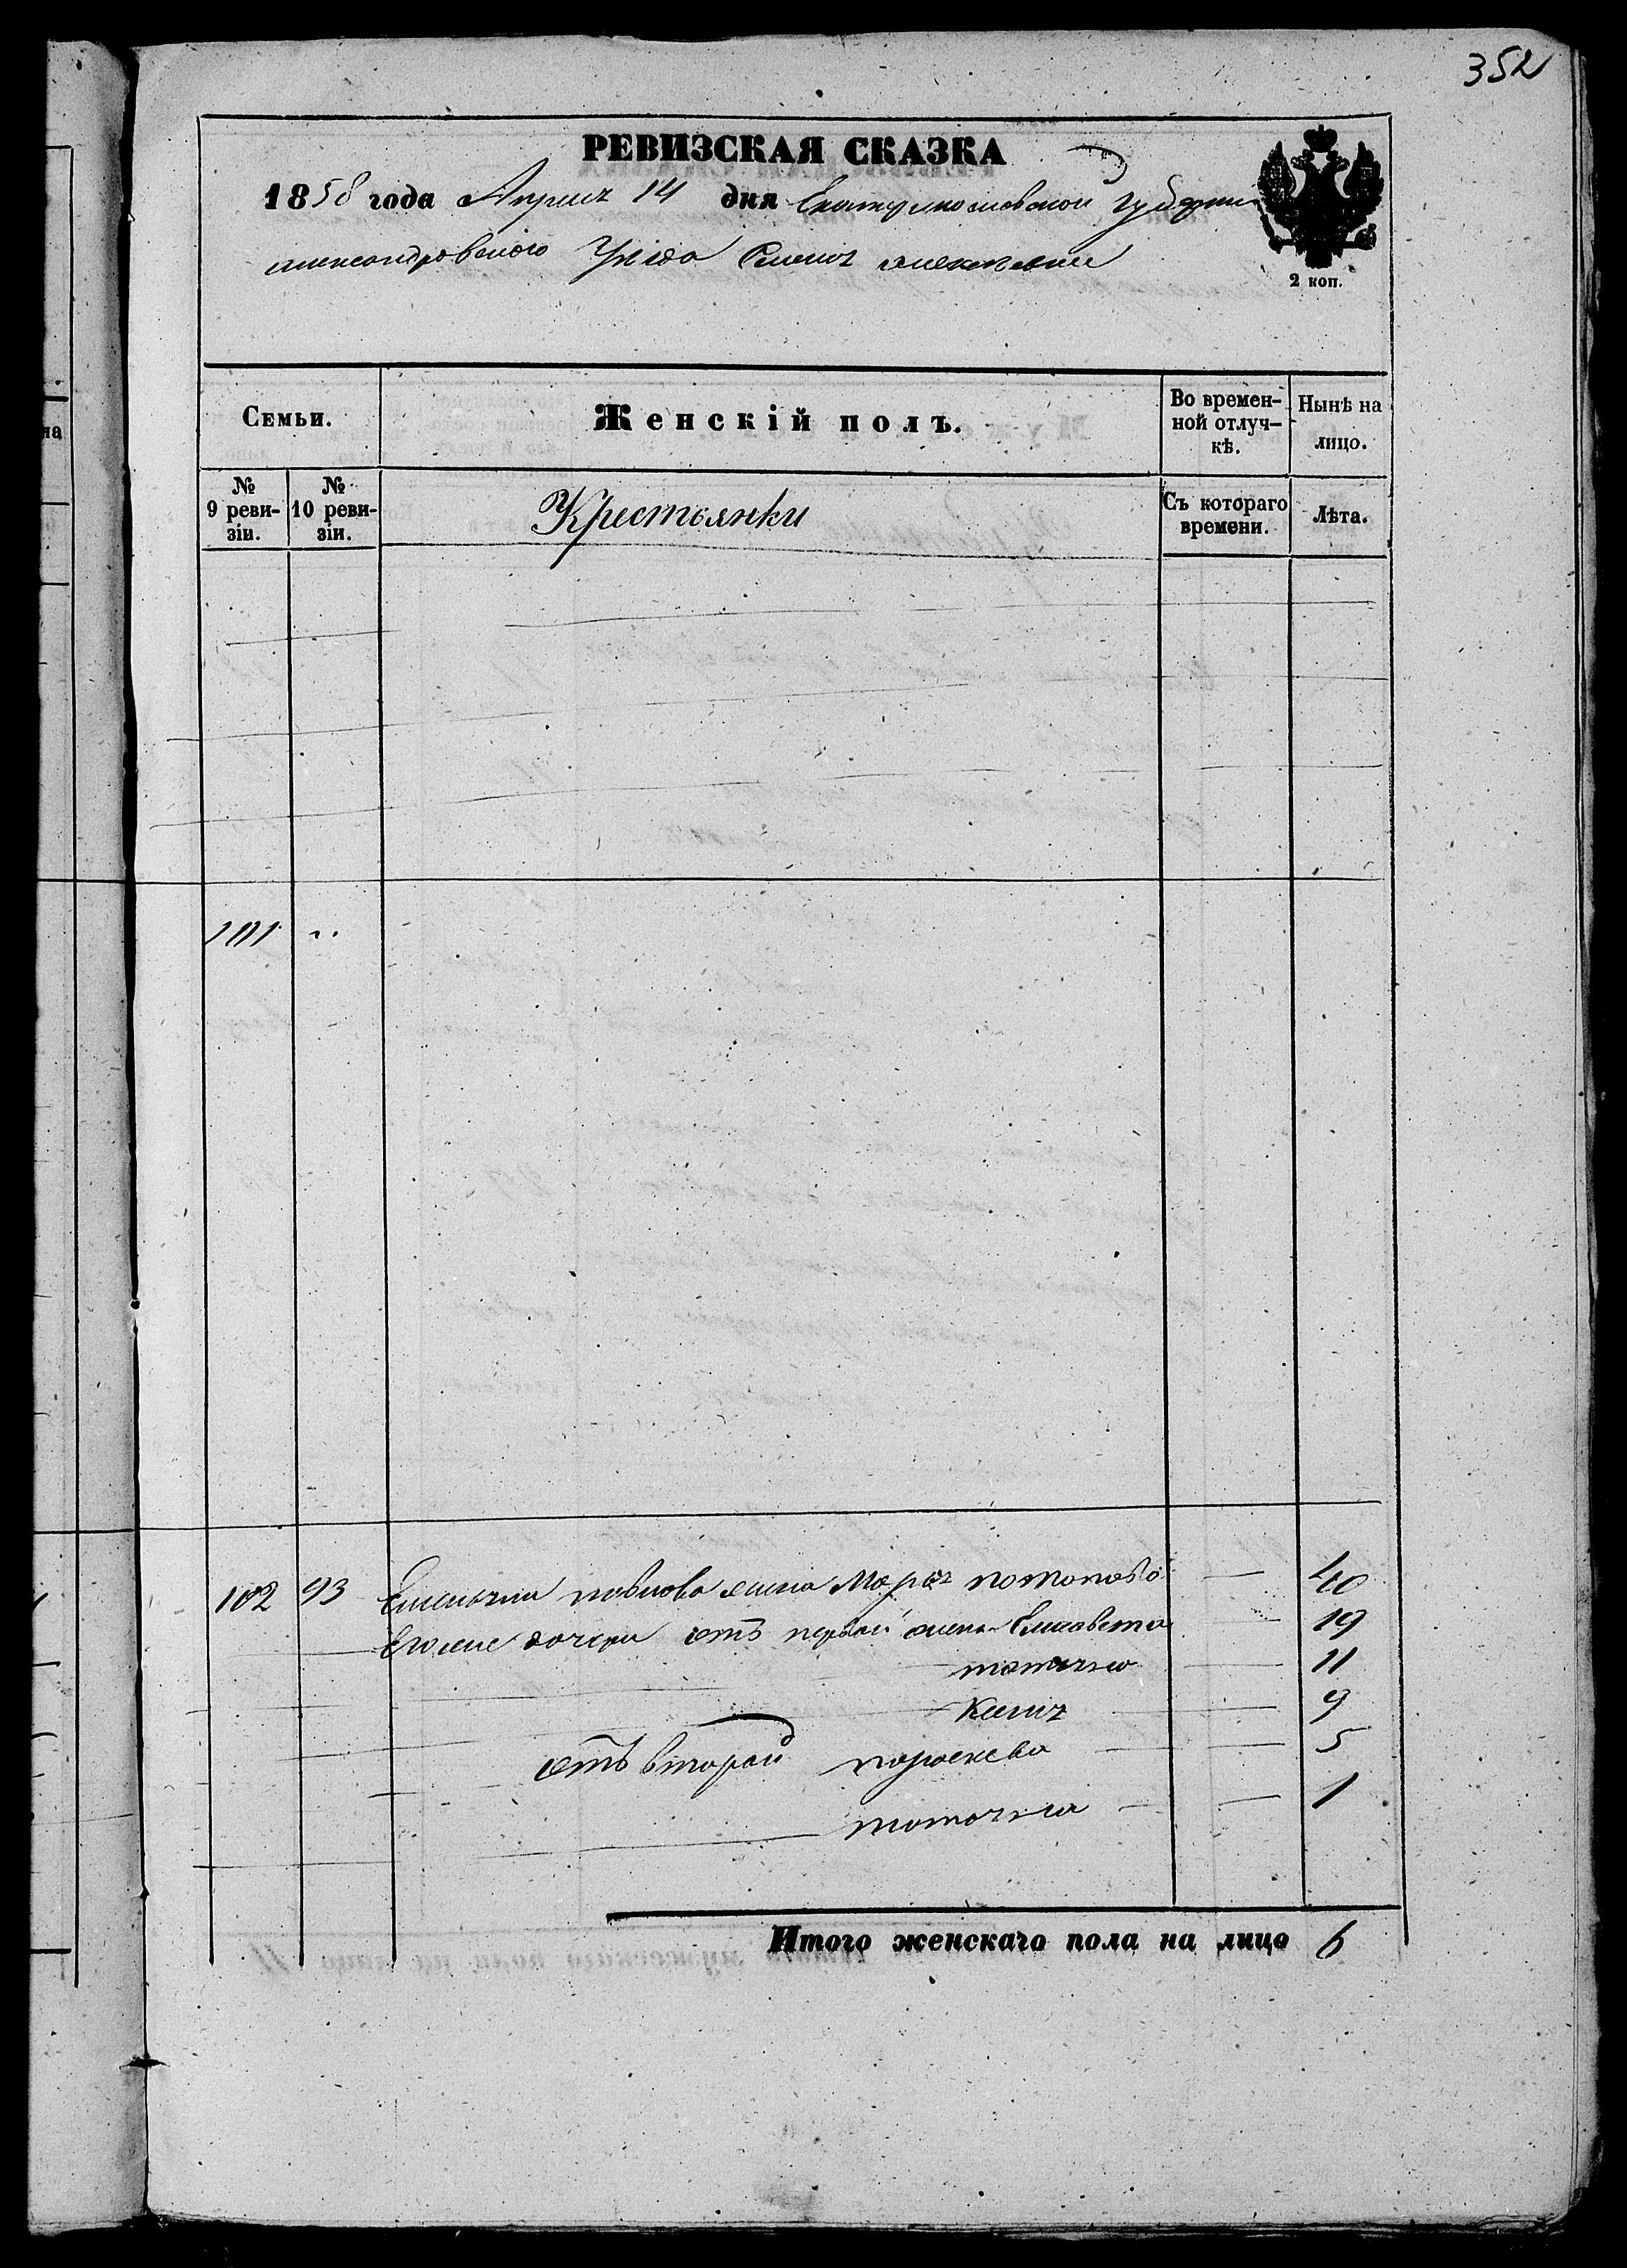 352
РЕВИЗСКАЯ СКАЗКА
1858 года Априля 14 дня Екатеринославской Губернии
александровского Уезда Селения
2 коп.
Семьи.
Женскій полъ.
Во времен-
ной отлуч-
кѣ.
Нынѣ на
лицо.
№
9 реви-
зіи.
№
10 реви-
зіи.
Крестьянки
Съ котораго
времени.
Лѣта.
101 "
102 93 Емельяна павлова жена Марья потапова — 40
Его же дочери отъ первой жены Елисавета — 19
татьяна — 11
— 9
отъ второй параскева — 5
татьяна — 1
Итого женскаго пола на лицо 6